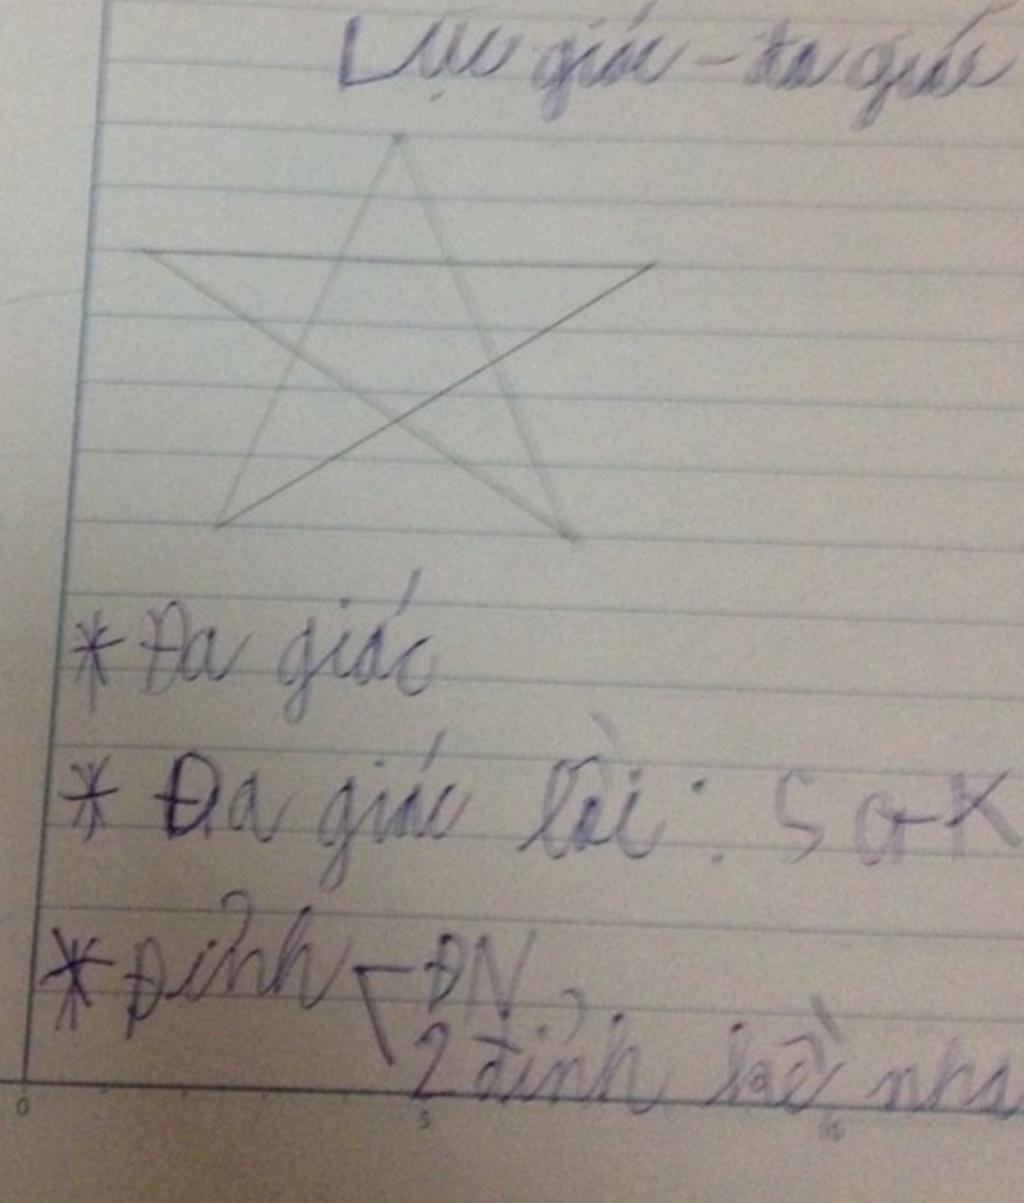 Lục giác - đa giác
* Đa giác
* Đa giác lồi: S
* Đỉnh ĐN
2 đỉnh kề
0 5 10